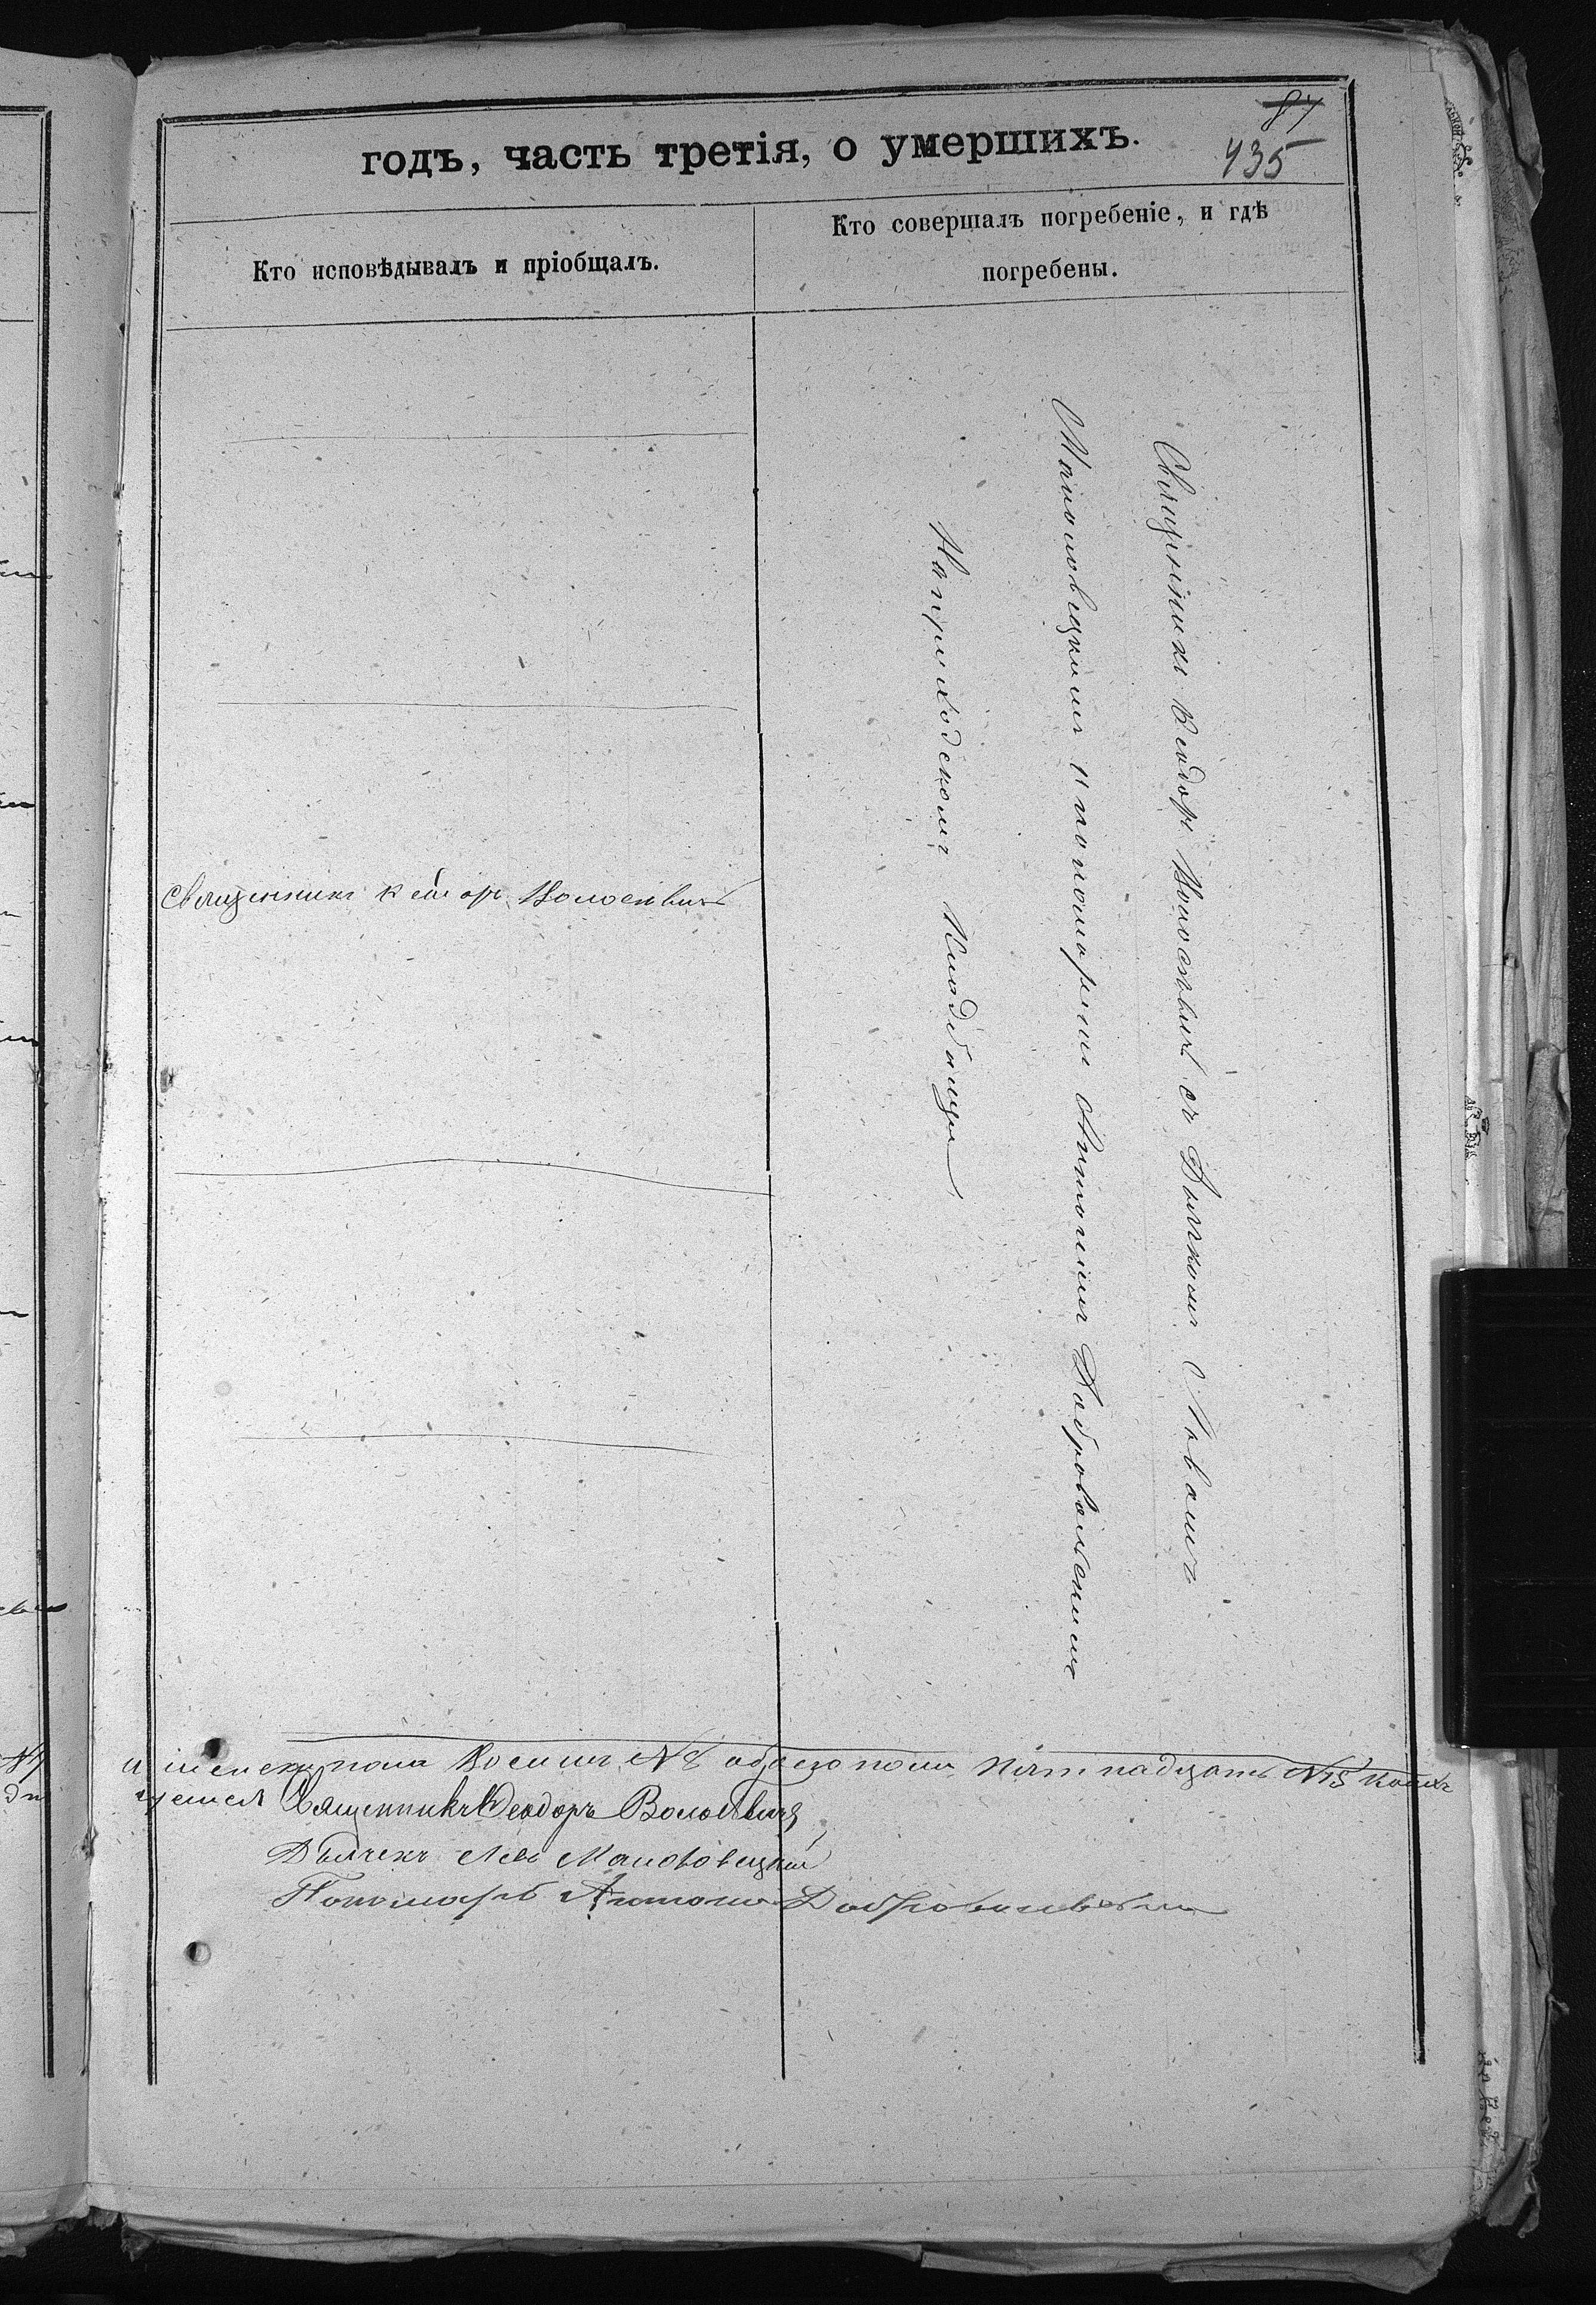 87
годъ, часть третія, о умершихъ.
435
Кто исповѣдывалъ и пріобщалъ.
Кто совершалъ погребеніе, и гдѣ
погребены.
Священникъ Ѳеодоръ Волосевичъ
Священникъ Ѳеодоръ Волосевичъ съ Дьячкомъ Львомъ
Маньковецкимъ и пономаремъ Антоніемъ Добровольскимъ
На приходскомъ Кладбищѣ
и женска пола Восемь №8 обоего пола пятнадцать №15
Священникъ Ѳеодоръ Волосевичъ
Дьячекъ Левъ Маньковецкій
Пономарь Антоній Добровольскій